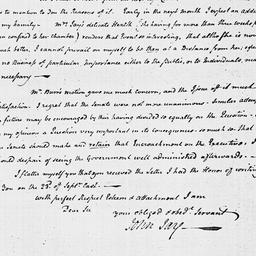 to mention to you the Reasons of it. Early in the next month I expect an addition
my Family. Mrs. Jay's delicate Health, (she having for more than three weeks past
confined to her chamber) renders that Event so interesting, that altho' she is now
much better, I cannot prevail on myself to be then at a Distance from her; especially
no Business of particular importance either to the public, or to Individuals, makes
necessary —
Mr. Burr's motion gave me much concern, and the Issue of it much
Satisfaction. I regret that the Senate were not more unanimous. Similar attempts
in future may be encouraged by their having divided so equally on the Question.
in my opinion a Question very important in its consequences: so much so, that
the Senate should make and retain that Encroachment on the Executive, I
should despair of seeing the Government well administred afterwards. —
I flatter myself that you recieved the Letter I had the Honor of writing
You on the 23d. of Septr. last.
with perfect Respect Esteem & attachment I am
Dear Sir
your obliged & obedt. Servant
John Jay